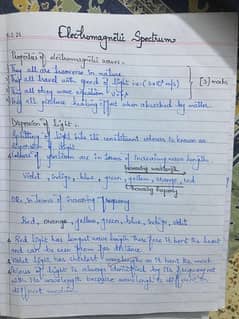 Electromagnetic Spectrum
Properties of electromagnetic waves:-
They all are transverse in nature.
They all travel with speed of light i.e. (3x10⁸ m/s)
They all obey wave equation v=fλ
They all produce heating effect when absorbed by matter.
[3] marks
Dispersion of light:-
Splitting of light into its constituent colours is known as
dispersion of light
Colours of spectrum are in terms of increasing wave length
increasing wavelength
Violet, indigo, blue, green, yellow, orange, red
decreasing frequency
OR, in terms of increasing frequency
Red, orange, yellow, green, blue, indigo, violet
Red light has longest wave length therefore it bent the least
and can be seen from far distance.
Violet light has shortest wavelength so it bent the most
Colour of light is always identified by its frequency
with its wavelength because wavelength is different in
different medium